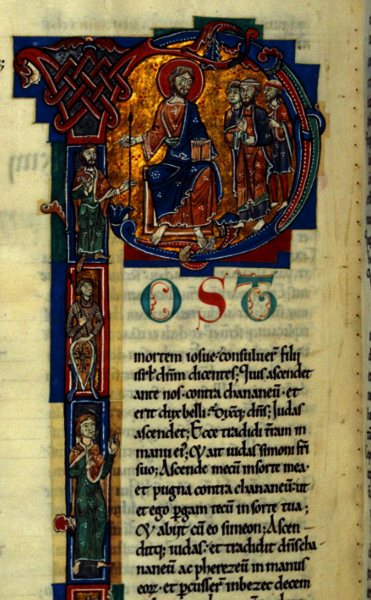 POST
mortem iosue· consuluer̄ filii
isrl̄ dn̄m dicentes; Quis ascendet
ante nos· contra chananeū· et
erit dux belli? Dixitq; dn̄s; Iudas
ascendet; Ecce tradidi t̄ram in
manu ei᾽; Et ait iudas simoni fr̄i
suo; Ascende mecū in sorte mea·
et pugna contra chananeū· ut
et ego ꝑgam tecū in sorte tua;
Et abiit cū eo simeon; Ascen-
ditq; iudas· et tradidit dn̄s cha-
naneū ac pherezeū in manus
eoꝝ· et ꝑcusser̄ in bezec decem